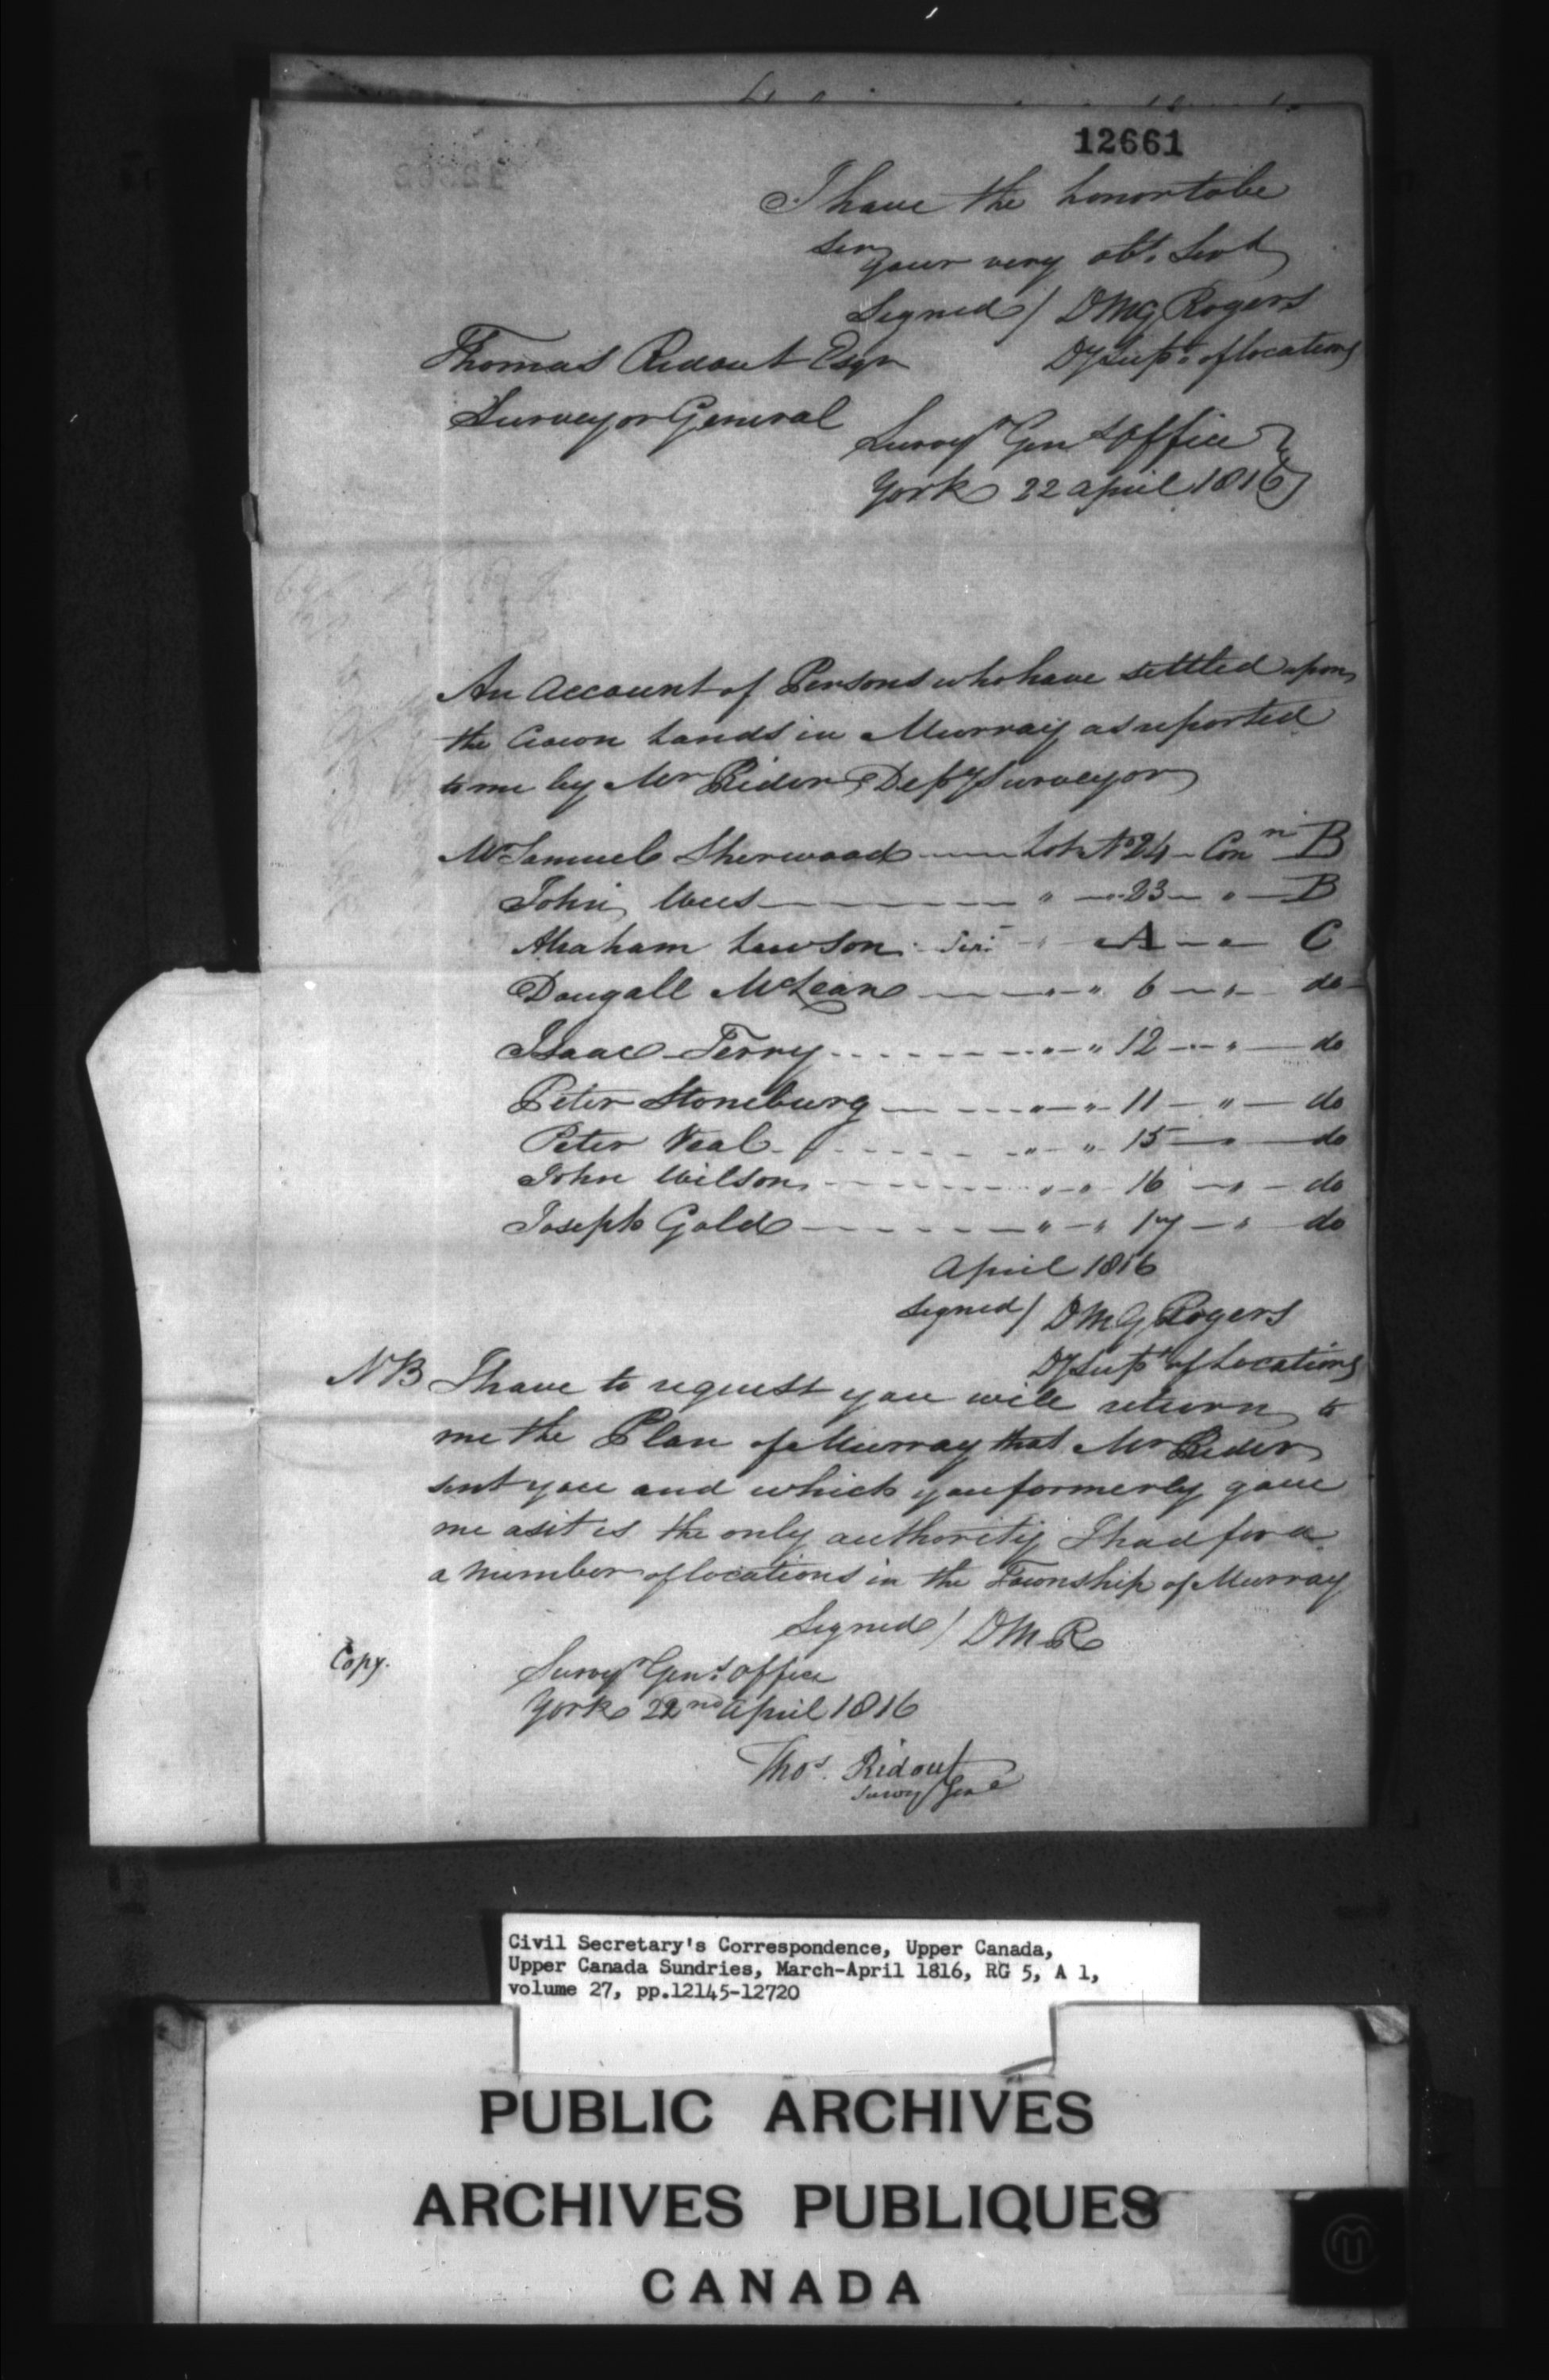 12661
I have the honor to be
Sir
your very obt. Servt
Signed / D McG Rogers
Dy Supt. of locations
Thomas Ridout Esqr
Surveyor General
Survyr Genls Office
York 22 April 1816
An Account of Persons who have settled upon
the Crown Lands in Murray as reported
to me by Mr Rider Depy Surveyor
Mr Samuel Sherwood Lot No 24 Conn B
John Wees " 23 " B
Abraham Lawson Senr " A " C
Dougall McLean " " 6 " do
Isaac Terry " " 12 " do
Peter Stoneburg " " 11 " do
Peter Neal " " 15 " do
John Wilson " " 16 " do
Joseph Gold " " 17 " do
April 1816
Signed / D McG Rogers
Dy Supt of Locations
NB I have to request you will return to
me the Plan of Murray that Mr Rider
sent you and which you formerly gave
me as it is the only authority I had for a
a number of locations in the Township of Murray
Signed / D McR
Copy.
Survyr Genls office
York 22nd April 1816
Thos. Ridout
Survyr Genl
Civil Secretary's Correspondence, Upper Canada,
Upper Canada Sundries, March-April 1816, RG 5, A 1,
volume 27, pp.12145-12720
PUBLIC ARCHIVES
ARCHIVES PUBLIQUES
CANADA